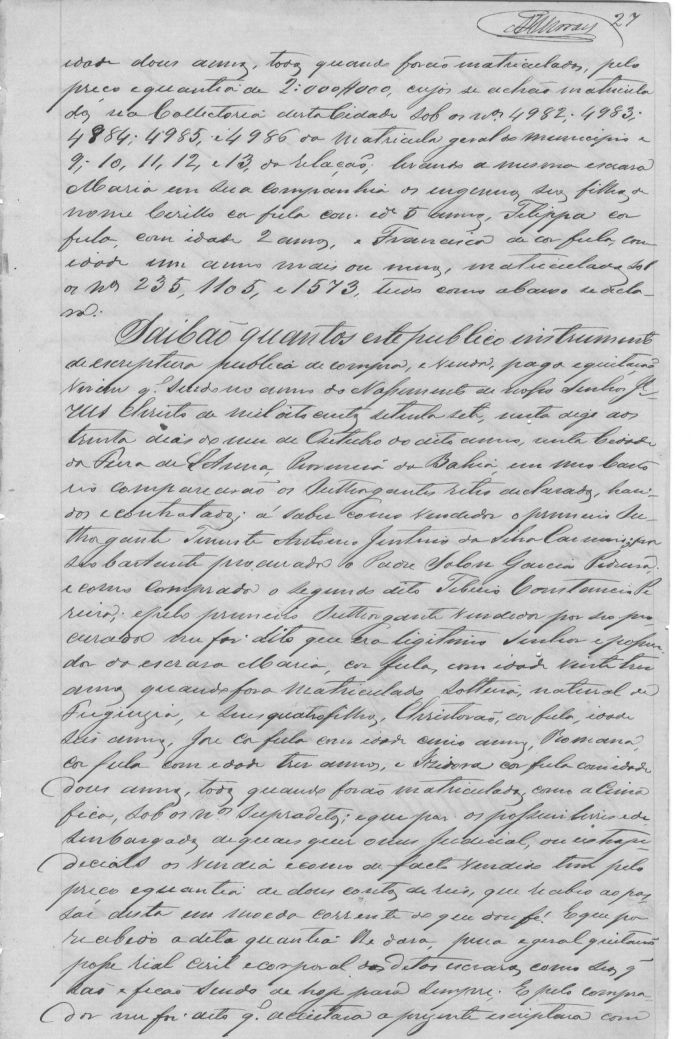 27
idade dous annos, todos quando forão matriculados, pelo
preço e quantia de 2:000#000, cujos se achão matricula
dos na Collectoria desta Cidade sob os nos 4982, 4983,
4984, 4985, e 4986 da matricula geral do municipio e
9, 10, 11, 12, e 13, da relação, levando a mesma escrava
Maria em sua companhia os ingenuos seus filhos de
nome Cirillo cor fula con. ide 5 annos, Filippa cor
fula, com idade 2 annos, e Francisca de cor fula, com
idade um anno mais ou menos, matriculados sob
os nos 235, 1105, e 1573, tudo como abaixo se decla-
ra.
Saibão quantos este publico instrumento
de escriptura publica de compra, e venda, paga e quitação
virem qe sendo no anno do Nassimento de Nosso Senhor Je-
zus Christo de mil oito centos setenta sete, nesta digo aos
trinta dias do mez de Outubro do dito anno, nesta Cidade
da Feira de Sta Anna, Provincia da Bahia, em meo Carto
rio comparecerão os Outhorgantes retro declarados, havi-
dos e contratados; á saber como vendedor o primeiro Ou-
thorgante Tenente Antonio da Silva por
seo bastante procurador o Padre Solon Garcia Pedreira,
e como comprador o segundo dito Tiberio Constancio Pe
reira; e pelo primeiro Outhorgante vendedor por seo pro
curador me foi dito que era ligitimo Senhor e possui-
dor da escrava Maria, cor fula, com idade vinte tres
annos quando fora matriculada, solteira, natural de
Freguezia, e seus quatro filhos, Christovão, cor fula, idade
seis annos, José cor fula com idade cinco annos, Romana,
cor fula com idade tres annos, e Izidora cor fula com idade
dous annos, todos quando forão matriculados, como acima
fica, sob os nos supraditos; e que por os possuir livres e de
sembargados de quaes quer onus judicial, ou extraju
deciaes os vendia e como de facto vendido tem pelo
preço e quantia de dous contos de reis, que recebio ao pas
sar desta em moeda corrente do que dou fé. E que por
recebedo a dita quantia lhe dava, plena e geral quitação
posse rial civil e corporal dos ditos escravos, como seos qe
são e ficão sendo de hoje para sempre. E pelo compra-
dor me foi dito qe acceitava a prezente escriptura com